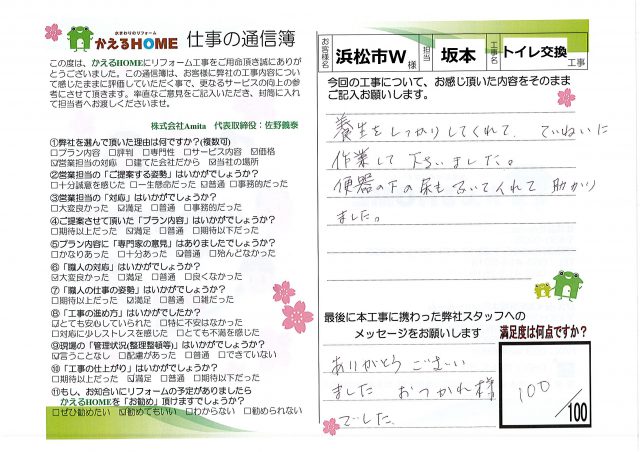 水まわりのリフォーム
かえるHOME 仕事の通信簿
この度は、かえるHOMEにリフォーム工事をご用命頂き誠にありが
とうございました。この通信簿は、お客様に弊社の工事内容につい
て感じたままに評価していただく事で、更なるサービスの向上の参
考にさせて頂きます。率直なご意見をご記入いただき、封筒に入れ
て担当者へお渡しくださいませ。
株式会社Amita 代表取締役：佐野義泰
①弊社を選んで頂いた理由は何ですか?(複数可)
□プラン内容 □評判 □専門性 □サービス内容 ☑価格
☑営業担当の対応 □建てた会社だから ☑当社の場所
②営業担当の「ご提案する姿勢」はいかがでしょうか?
□十分誠意を感じた □一生懸命だった ☑普通 □事務的だった
③営業担当の「対応」はいかがでしょうか?
□大変良かった ☑満足 □普通 □事務的だった
④ご提案させて頂いた「プラン内容」はいかがでしょうか?
□期待以上だった ☑満足 □普通 □期待以下だった
⑤プラン内容に「専門家の意見」はありましたでしょうか?
□かなりあった □十分あった ☑普通 □殆んどなかった
⑥「職人の対応」はいかがでしょうか?
☑大変良かった □満足 □普通 □良くなかった
⑦「職人の仕事の姿勢」はいかがでしょうか?
□期待以上だった ☑満足 □普通 □雑だった
⑧「工事の進め方」はいかがでしたか?
☑とても安心していられた □特に不安はなかった
□対応に少しストレスを感じた □とても不満を感じた
⑨現場の「管理状況(整理整頓等)」はいかがでしょうか?
☑言うことなし □配慮があった □普通 □できていない
⑩「工事の仕上がり」はいかがでしょうか?
□期待以上だった ☑満足 □普通 □期待以下だった
⑪もし、お知合いにリフォームの予定がありましたら
かえるHOMEを「お勧め」頂けますでしょうか?
□ぜひ勧めたい ☑勧めてもいい □わからない □勧められない
お客様名 浜松市W 様 担当 坂本 工事名 トイレ交換 工事
今回の工事について、お感じ頂いた内容をそのまま
ご記入お願いします。
養生をしっかりしてくれて、ていねいに
作業して下さいました。
便器の下の床も ふいてくれて 助かり
ました。
最後に本工事に携わった弊社スタッフへの
メッセージをお願いします
ありがとう ございい
ました おつかれ様
でした
満足度は何点ですか?
100
/100